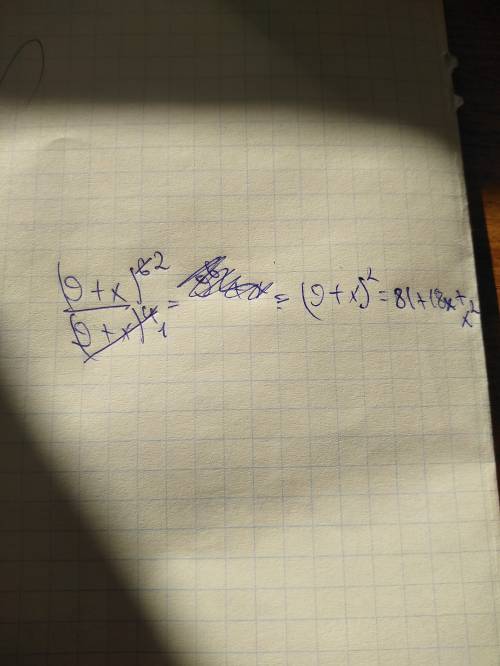 (9+x)^6 2 / (9+x)^4 1 = = (9+x)^2 = 81+18x+
x^2